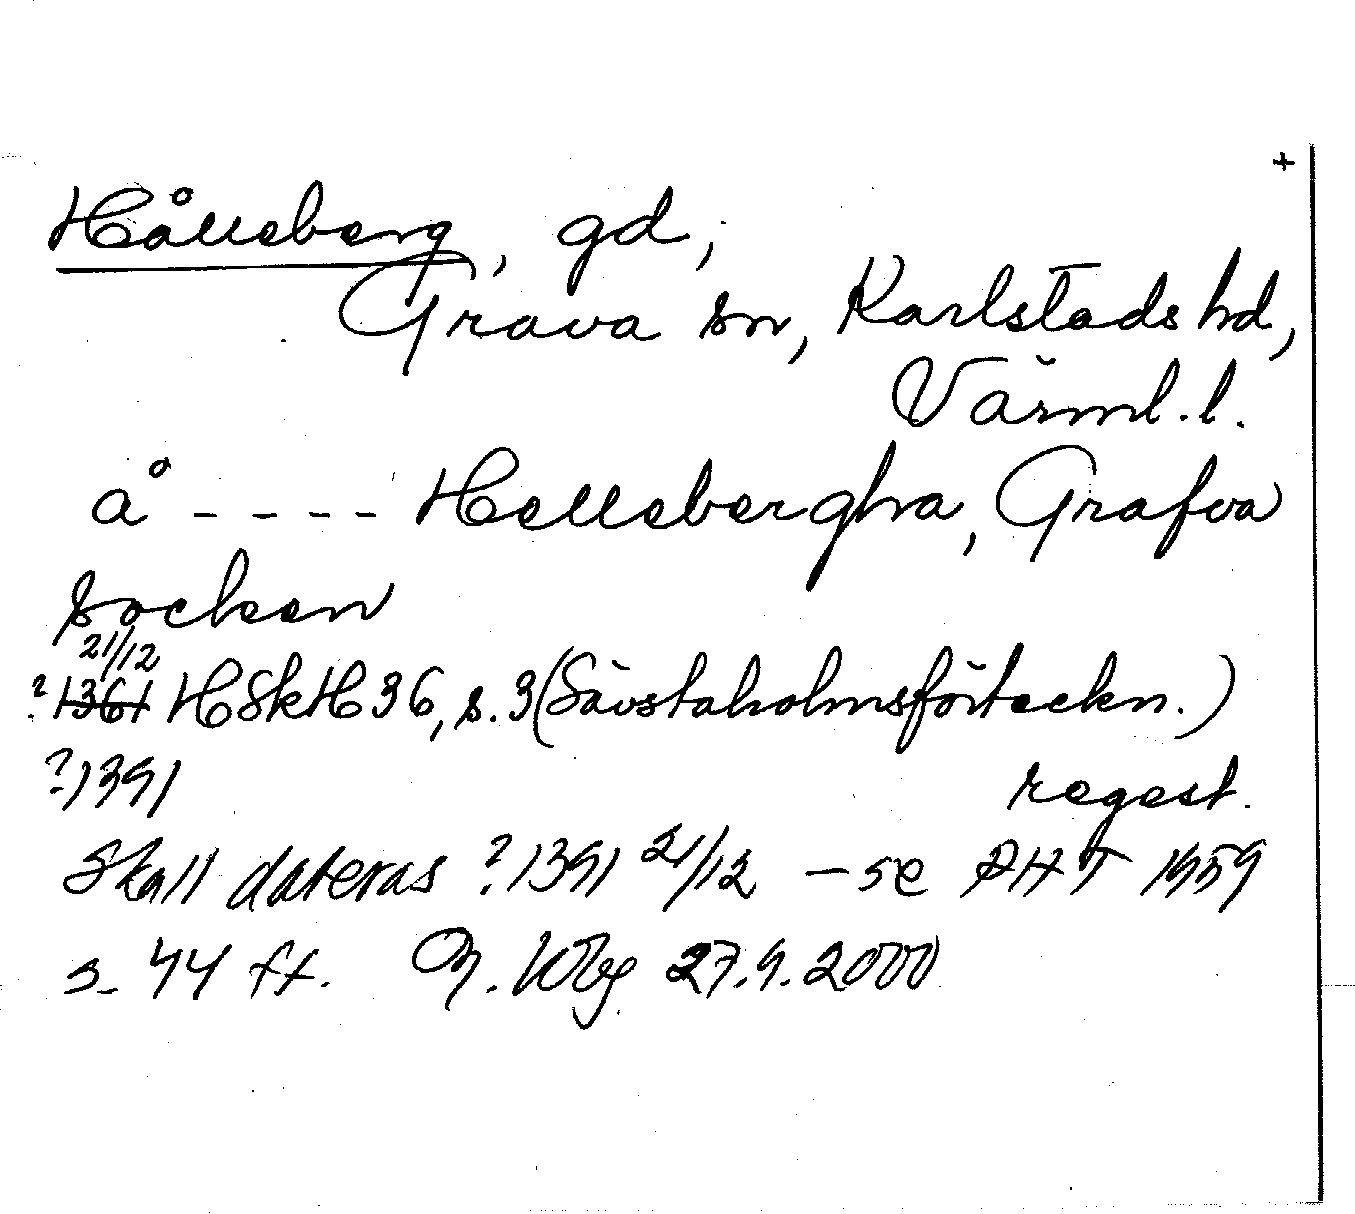 +
Hålleberg, gd,
Grava sn, Karlstads hd,
Värml. l.
å - - - - Hellebergha, Grafva
socken
21/12
? 1361 HSkH 36, s. 3 (Sävstaholmsförteckn.)
? 1391 regest.
Skall dateras ? 1391 21/12 - se PHT 1959
s. 44 ff. 27.9.2000